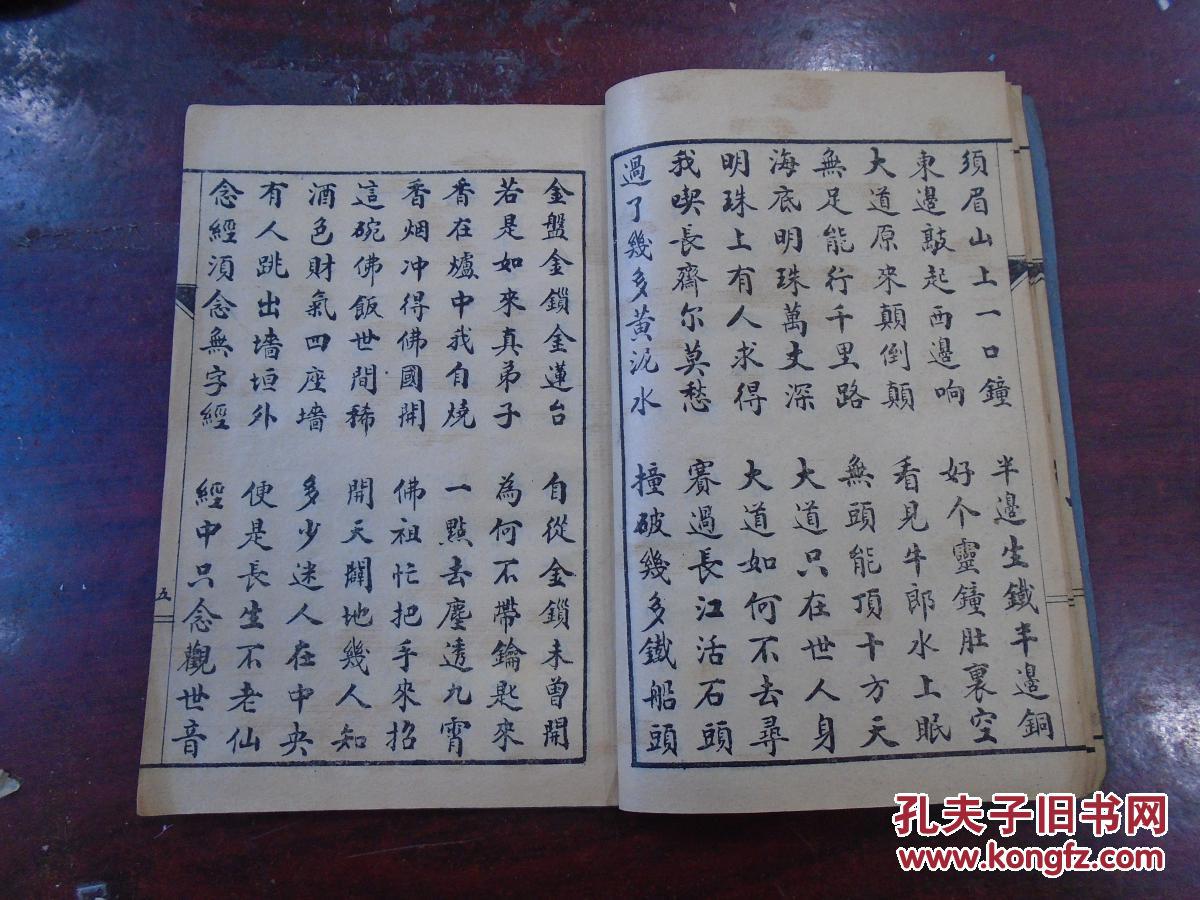 須眉山上一口鐘　半邊生鐵半邊銅
東邊敲起西邊响　好个靈鐘肚裏空
大道原來顛倒顛　看見牛郎水上眠
無足能行千里路　無頭能頂十方天
海底明珠萬丈深　大道只在世人身
明珠上有人求得　大道如何不去尋
我喫長齋尔莫愁　賽過長江活石頭
過了幾多黃泥水　撞破幾多鐵船頭
金盤金鎖金蓮台　自從金鎖未曾開
若是如來真弟子　為何不帶鑰匙來
香在爐中我自燒　一點去塵透九霄
香烟冲得佛國開　佛祖忙把手來招
這碗佛飯世間稀　開天闢地幾人知
酒色財氣四座墻　多少迷人在中央
有人跳出墻垣外　便是長生不老仙
念經須念無字經　經中只念觀世音
五
孔夫子旧书网
www.kongfz.com